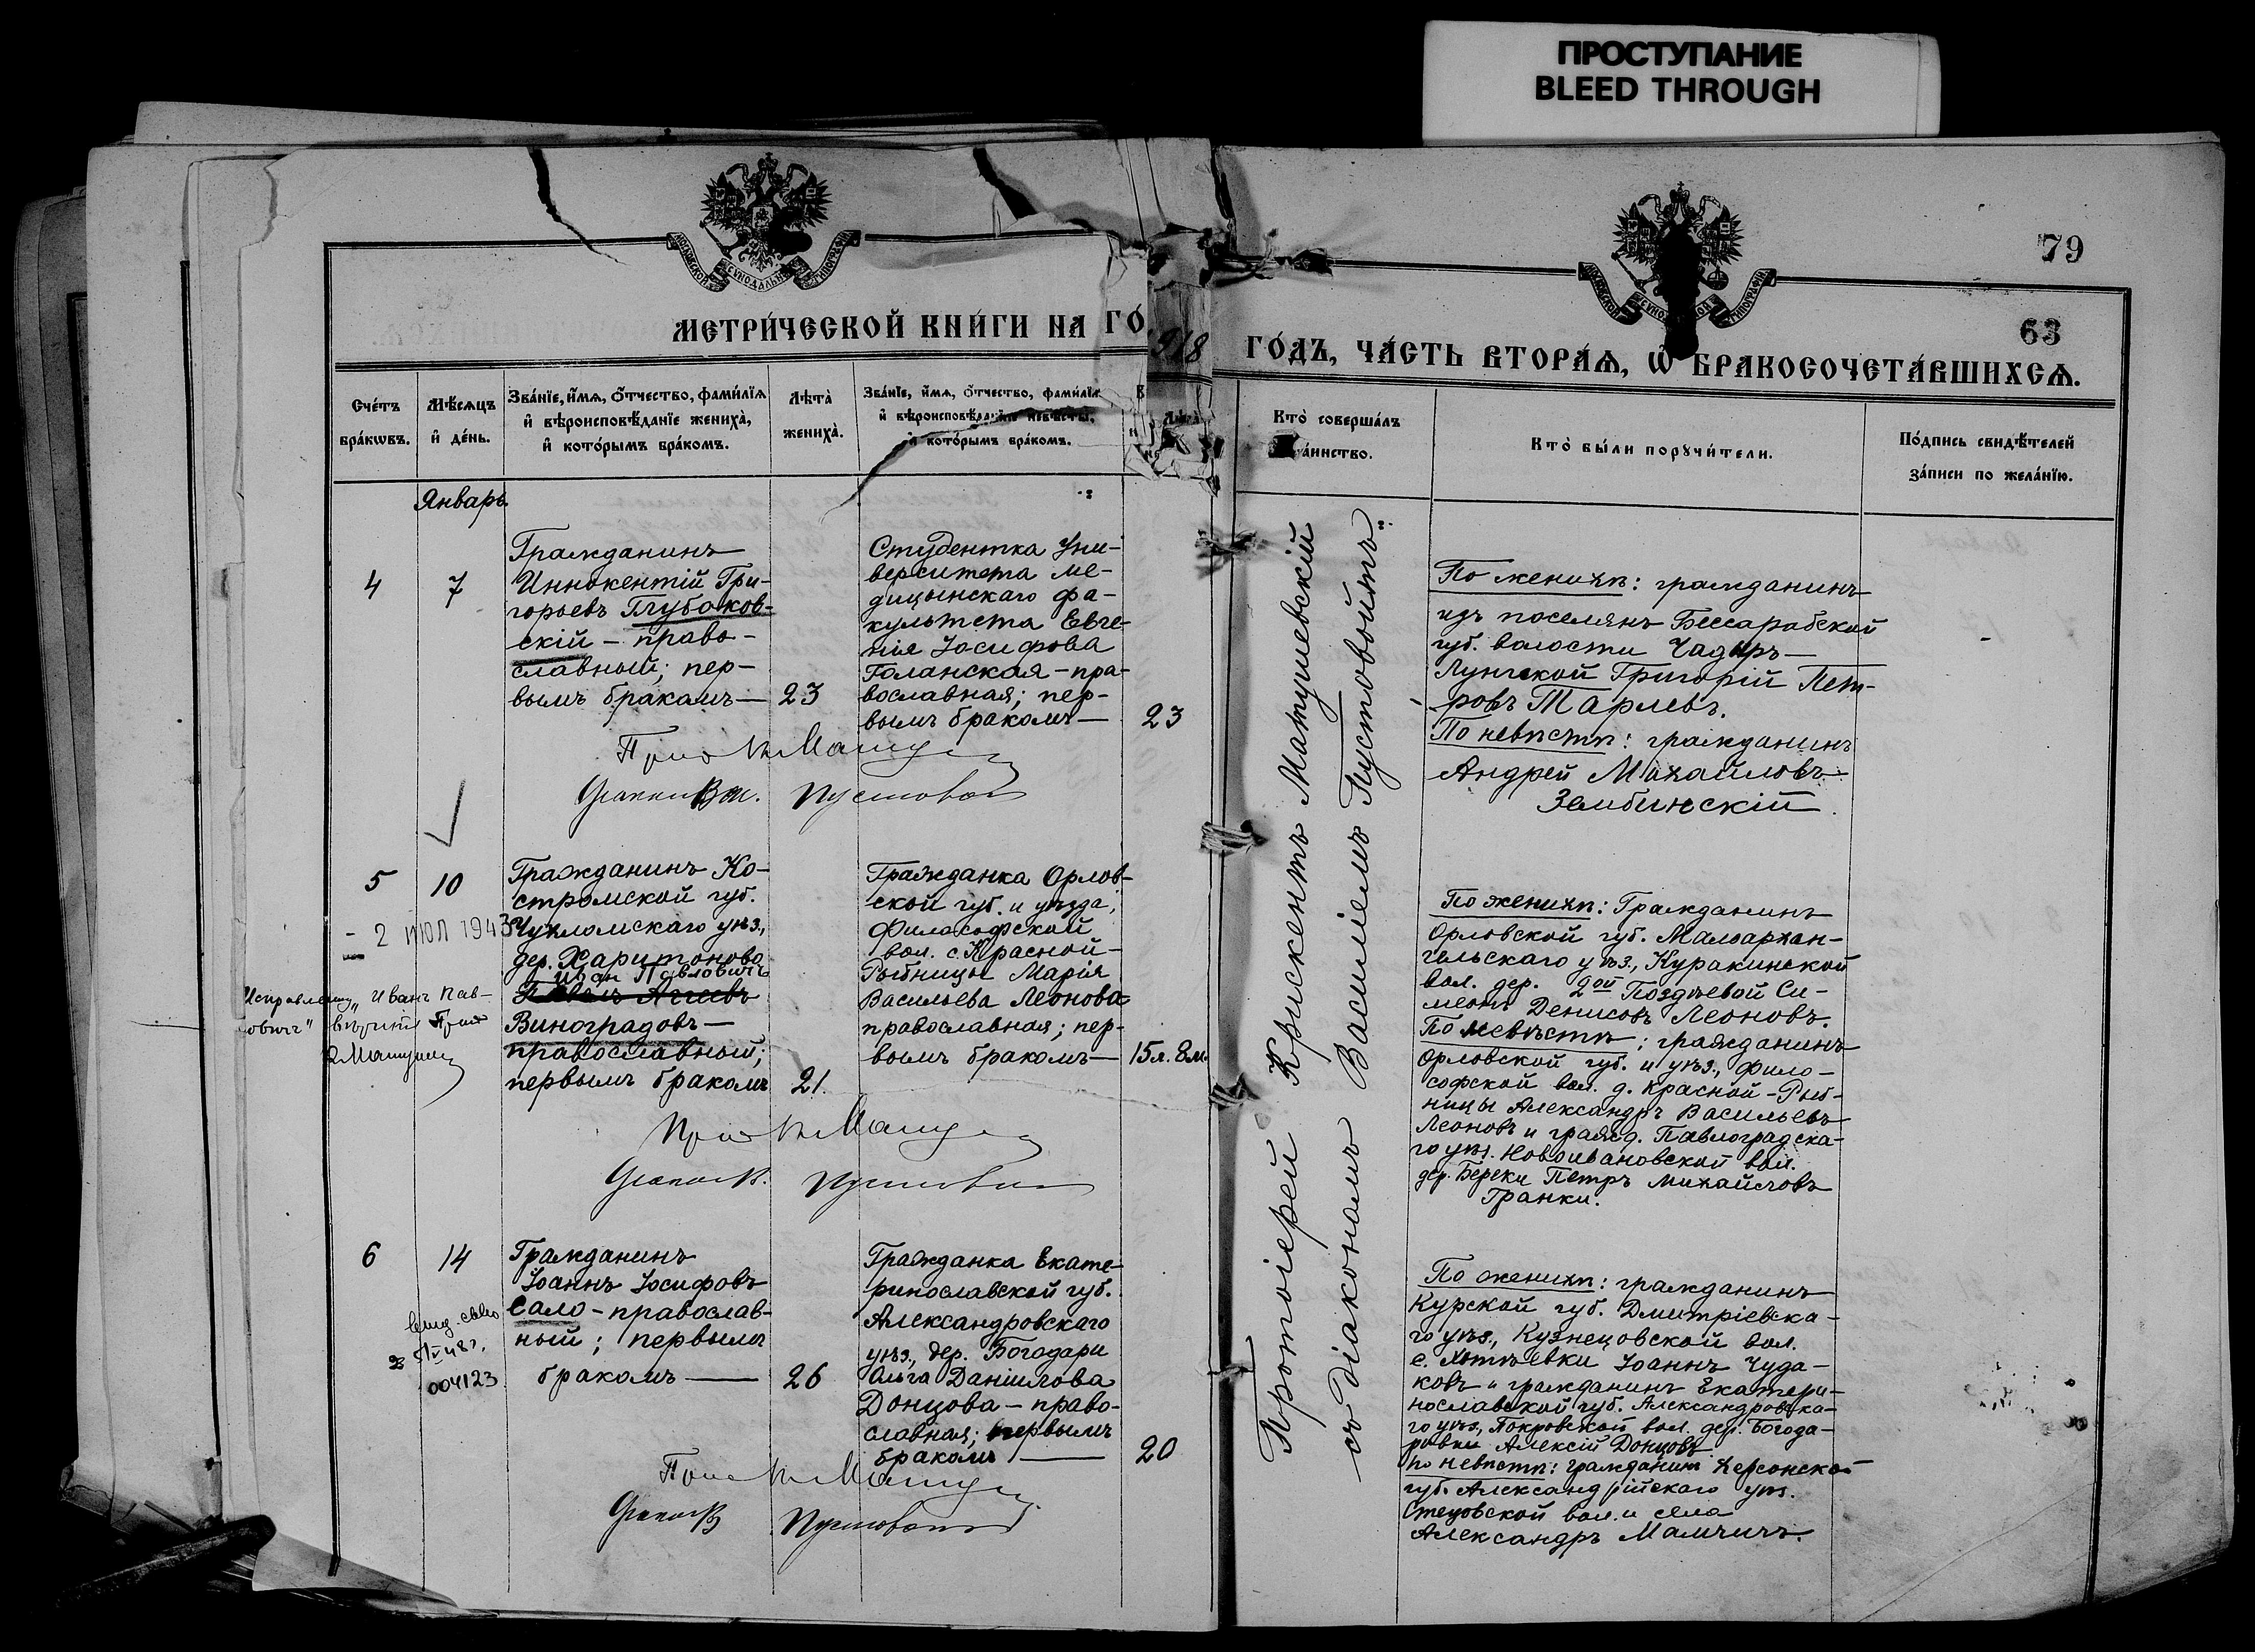 ПРОСТУПАНИЕ
BLEED THROUGH
79
63
МЕТРИ́ЧЕСКОЙ КНИ́ГИ НА ГО́
918
ГО́ДЪ, ЧА́СТЬ ВТОРА́Ѧ, Ѽ БРАКОСОЧЕТА́ВШИХСѦ.
Сче́тъ бра́кѡвъ.
Мѣ́сѧцъ и҆ де́нь.
Зва́нїе, и҆́мѧ, ѻ҆́тчество, фами́лїѧ
и҆ вѣроисповѣ́данїе жениха̀,
и҆ кото́рымъ бра́комъ.
Лѣта̀ жениха̀.
Зва́нїе, и҆́мѧ, ѻ҆́тчество, фами́лїѧ
и҆ вѣроисповѣ́данїе невѣ́сты,
и҆ кото́рымъ бра́комъ.
Кто̀ соверша́лъ
та́инство.
Кто̀ бы́ли порꙋчи́тели.
По́дпись свидѣ́телей
за́писи по жела́нїю.
Январь.
4
7
Гражданинъ
Иннокентій Гри-
горьевъ Глубоков-
скій - право-
славный; пер-
вымъ бракомъ —
23
Студентка Уни-
верситета ме-
дицынскаго фа-
культета Евге-
нія Іосифова
Голанская - пра-
вославная; пер-
вымъ бракомъ —
23
Пустовой
По женихѣ: гражданинъ
изъ поселянъ Бессарабской
губ. волости Чадыръ-
Лунгской Григорій Пет-
ровъ Тарлевъ.
По невѣстѣ: гражданинъ
Андрей Михайловъ
Зембинскій.
Протоіерей Крискентъ Матушевскій
съ діакономъ Василіемъ Пустовойтъ.
5
10
- 2 ИЮЛ 1943
Гражданинъ Ко-
стромской губ.
Чухломскаго уѣз.,
дер. Харитоново
Иван Павловичъ
Павелъ Агеевъ
Виноградовъ —
православный;
первымъ бракомъ
21.
Исправленіе „Иванъ Пав-
ловичъ"
Гражданка Орлов-
ской губ. и уѣзда,
Филасофской
вол. с. Красной-
Рыбницы Марія
Васильева Леонова
православная; пер-
вымъ бракомъ —
15 л. 8 м.
По женихѣ: Гражданинъ
Орловской губ. Малоархан-
гельскаго уѣз., Куракинской
вол. дер. 2ой Поздѣевой Си-
меонъ Денисовъ Леоновъ.
По невѣстѣ: гражданинъ
Орловской губ. и уѣз., Фило-
софской вол. д. Красной-Рыб-
ницы Александръ Васильевъ
Леоновъ и гражд. Павлоградска-
го уѣз. Новоивановской вол.
дер. Береки Петръ Михайловъ
Гранки.
6
14
004123
Гражданинъ
Іоаннъ Іосифовъ
Сало - православ-
ный; первымъ
бракомъ —
26
Гражданка Екате-
ринославской губ.
Александровскаго
уѣз., дер. Богодари
Ольга Даніилова
Донцова - право-
славная; первымъ
бракомъ —
20
По женихѣ: гражданинъ
Курской губ. Дмитріевска-
го уѣз., Кузнецовской вол.
с. Хотѣевки Іоаннъ Чуда-
ковъ и гражданинъ Екатери-
нославской губ. Александровска-
го уѣз., Покровской вол. дер. Богода-
ровки Алексій Донцовъ
По невѣстѣ: гражданинъ Херсонской
губ. Александрійскаго уѣз.
Стецовской вол. и села
Александръ Мамчичъ.